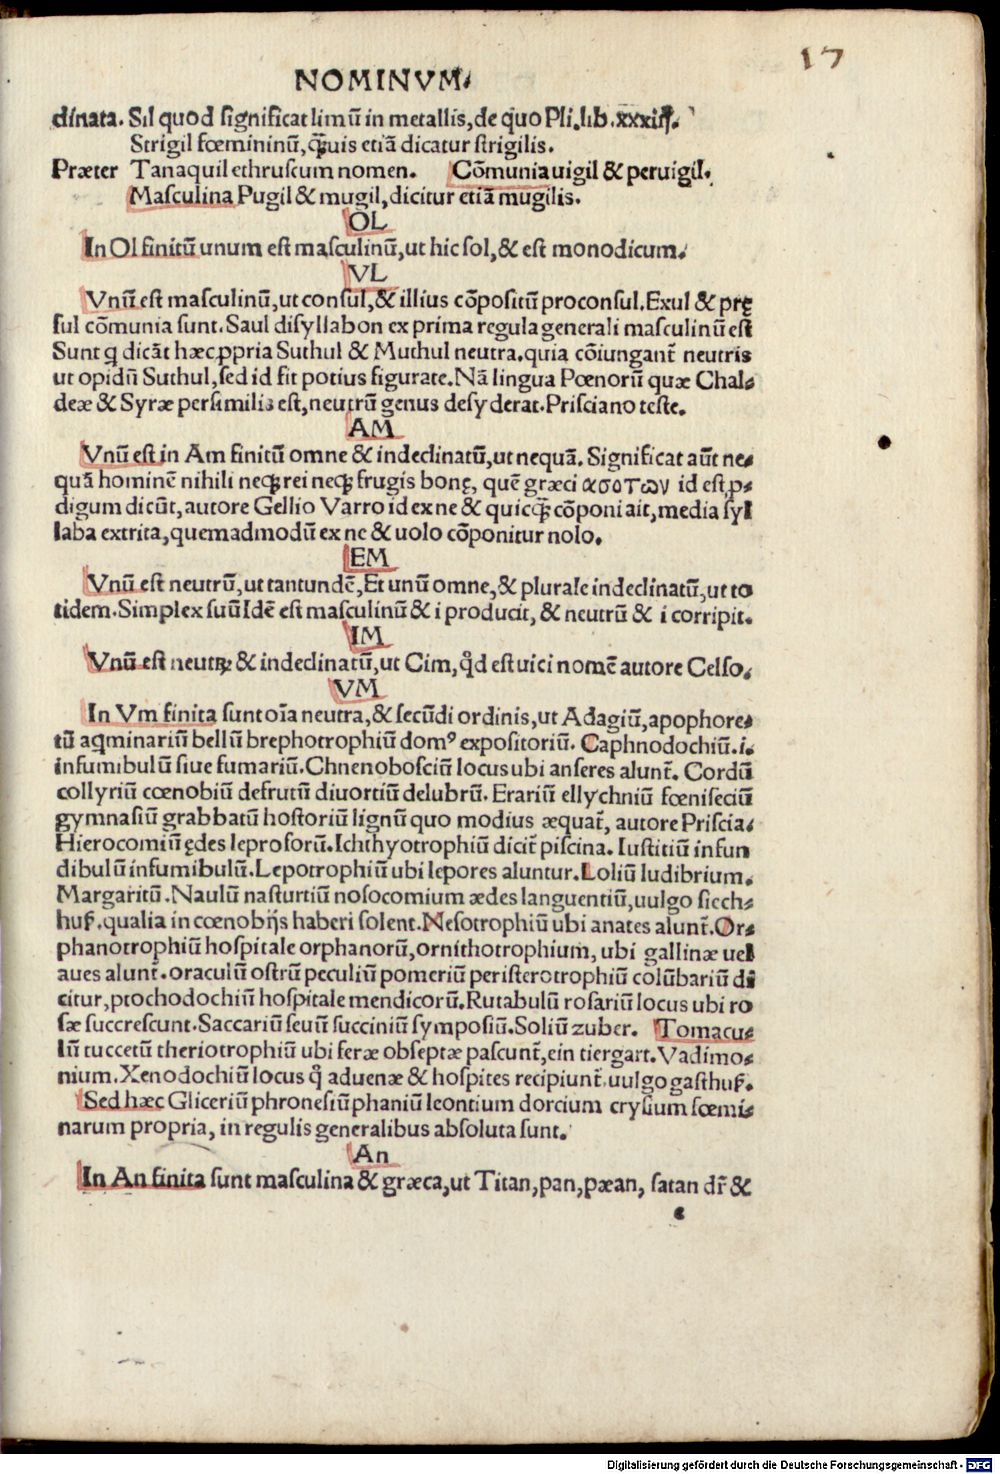 17
NOMINVM.
dinata. Sil quod significat limũ in metallis, de quo Pli. lib. xxxiij.
Strigil fœmininũ, q̃uis etiã dicatur strigilis.
Præter Tanaquil ethruscum nomen. Cõmunia uigil & peruigil.
Masculina Pugil & mugil, dicitur etiã mugilis.
OL
In Ol finitũ unum est masculinũ, ut hic sol, & est monodicum.
VL
Vnũ est masculinũ, ut consul, & illius cõpositũ proconsul. Exul & prę
sul cõmunia sunt. Saul disyllabon ex prima regula generali masculinũ est
Sunt q dicãt hæc ꝓpria Suthul & Muthul neutra. quia cõiungant̃ neutris
ut opidũ Suthul, sed id fit potius figurate. Nã lingua Pœnorũ quæ Chal⸗
deæ & Syræ persimilis est, neutrũ genus desyderat. Prisciano teste.
AM
Vnũ est in Am finitũ omne & indeclinatũ, ut nequã. Significat aũt ne⸗
quã hominẽ nihili neqꝫ rei neqꝫ frugis bonę, quẽ græci ασοτων id est ꝓ⸗
digum dicũt, autore Gellio Varro id ex ne & quicq̃ cõponi ait, media syl
laba extrita, quemadmodũ ex ne & uolo cõponitur nolo.
EM
Vnũ est neutrũ, ut tantundẽ, Et unũ omne, & plurale indeclinatũ, ut to
tidem. Simplex suũ Idẽ est masculinũ & i producit, & neutrũ & i corripit.
IM
Vnũ est neutꝝ & indeclinatũ, ut Cim, qđ est uici nomẽ autore Celso.
VM
In Vm finita sunt oĩa neutra, & secũdi ordinis, ut Adagiũ, apophore⸗
tũ aqminariũ bellũ brephotrophiũ domꝰ expositoriũ. Caphnodochiũ .i.
infumibulũ siue fumariũ. Chnenobosciũ locus ubi anseres alunt̃. Cordũ
collyriũ cœnobiũ defrutũ diuortiũ delubrũ. Erariũ ellychniũ fœniseciũ
gymnasiũ grabbatũ hostoriũ lignũ quo modius æquat̃, autore Priscia⸗
Hierocomiũ ędes leprosorũ. Ichthyotrophiũ dicit̃ piscina. Iustitiũ infun
dibulũ infumibulũ. Lepotrophiũ ubi lepores aluntur. Loliũ ludibrium.
Margaritũ. Naulũ nasturtiũ nosocomium ædes languentiũ, uulgo siech⸗
huß. qualia in cœnobijs haberi solent. Nesotrophiũ ubi anates alunt̃. Or⸗
phanotrophiũ hospitale orphanorũ, ornithotrophium, ubi gallinæ uel
aues alunt̃. oraculũ ostrũ peculiũ pomeriũ peristerotrophiũ colũbariũ di
citur, ptochodochiũ hospitale mendicorũ. Rutabulũ rosariũ locus ubi ro
sæ succrescunt. Saccariũ seuũ succiniũ symposiũ. Soliũ zuber. Tomacu⸗
lũ tuccetũ theriotrophiũ ubi feræ obseptæ pascunt̃, ein tiergart. Vadimo⸗
nium. Xenodochiũ locus q̃ aduenæ & hospites recipiunt̃. uulgo gasthuß.
Sed hæc Gliceriũ phronesiũ phaniũ leontium dorcium crysium fœmi⸗
narum propria, in regulis generalibus absoluta sunt.
An
In An finita sunt masculina & græca, ut Titan, pan, pæan, satan dr̃ &
c
Digitalisierung gefördert durch die Deutsche Forschungsgemeinschaft - DFG